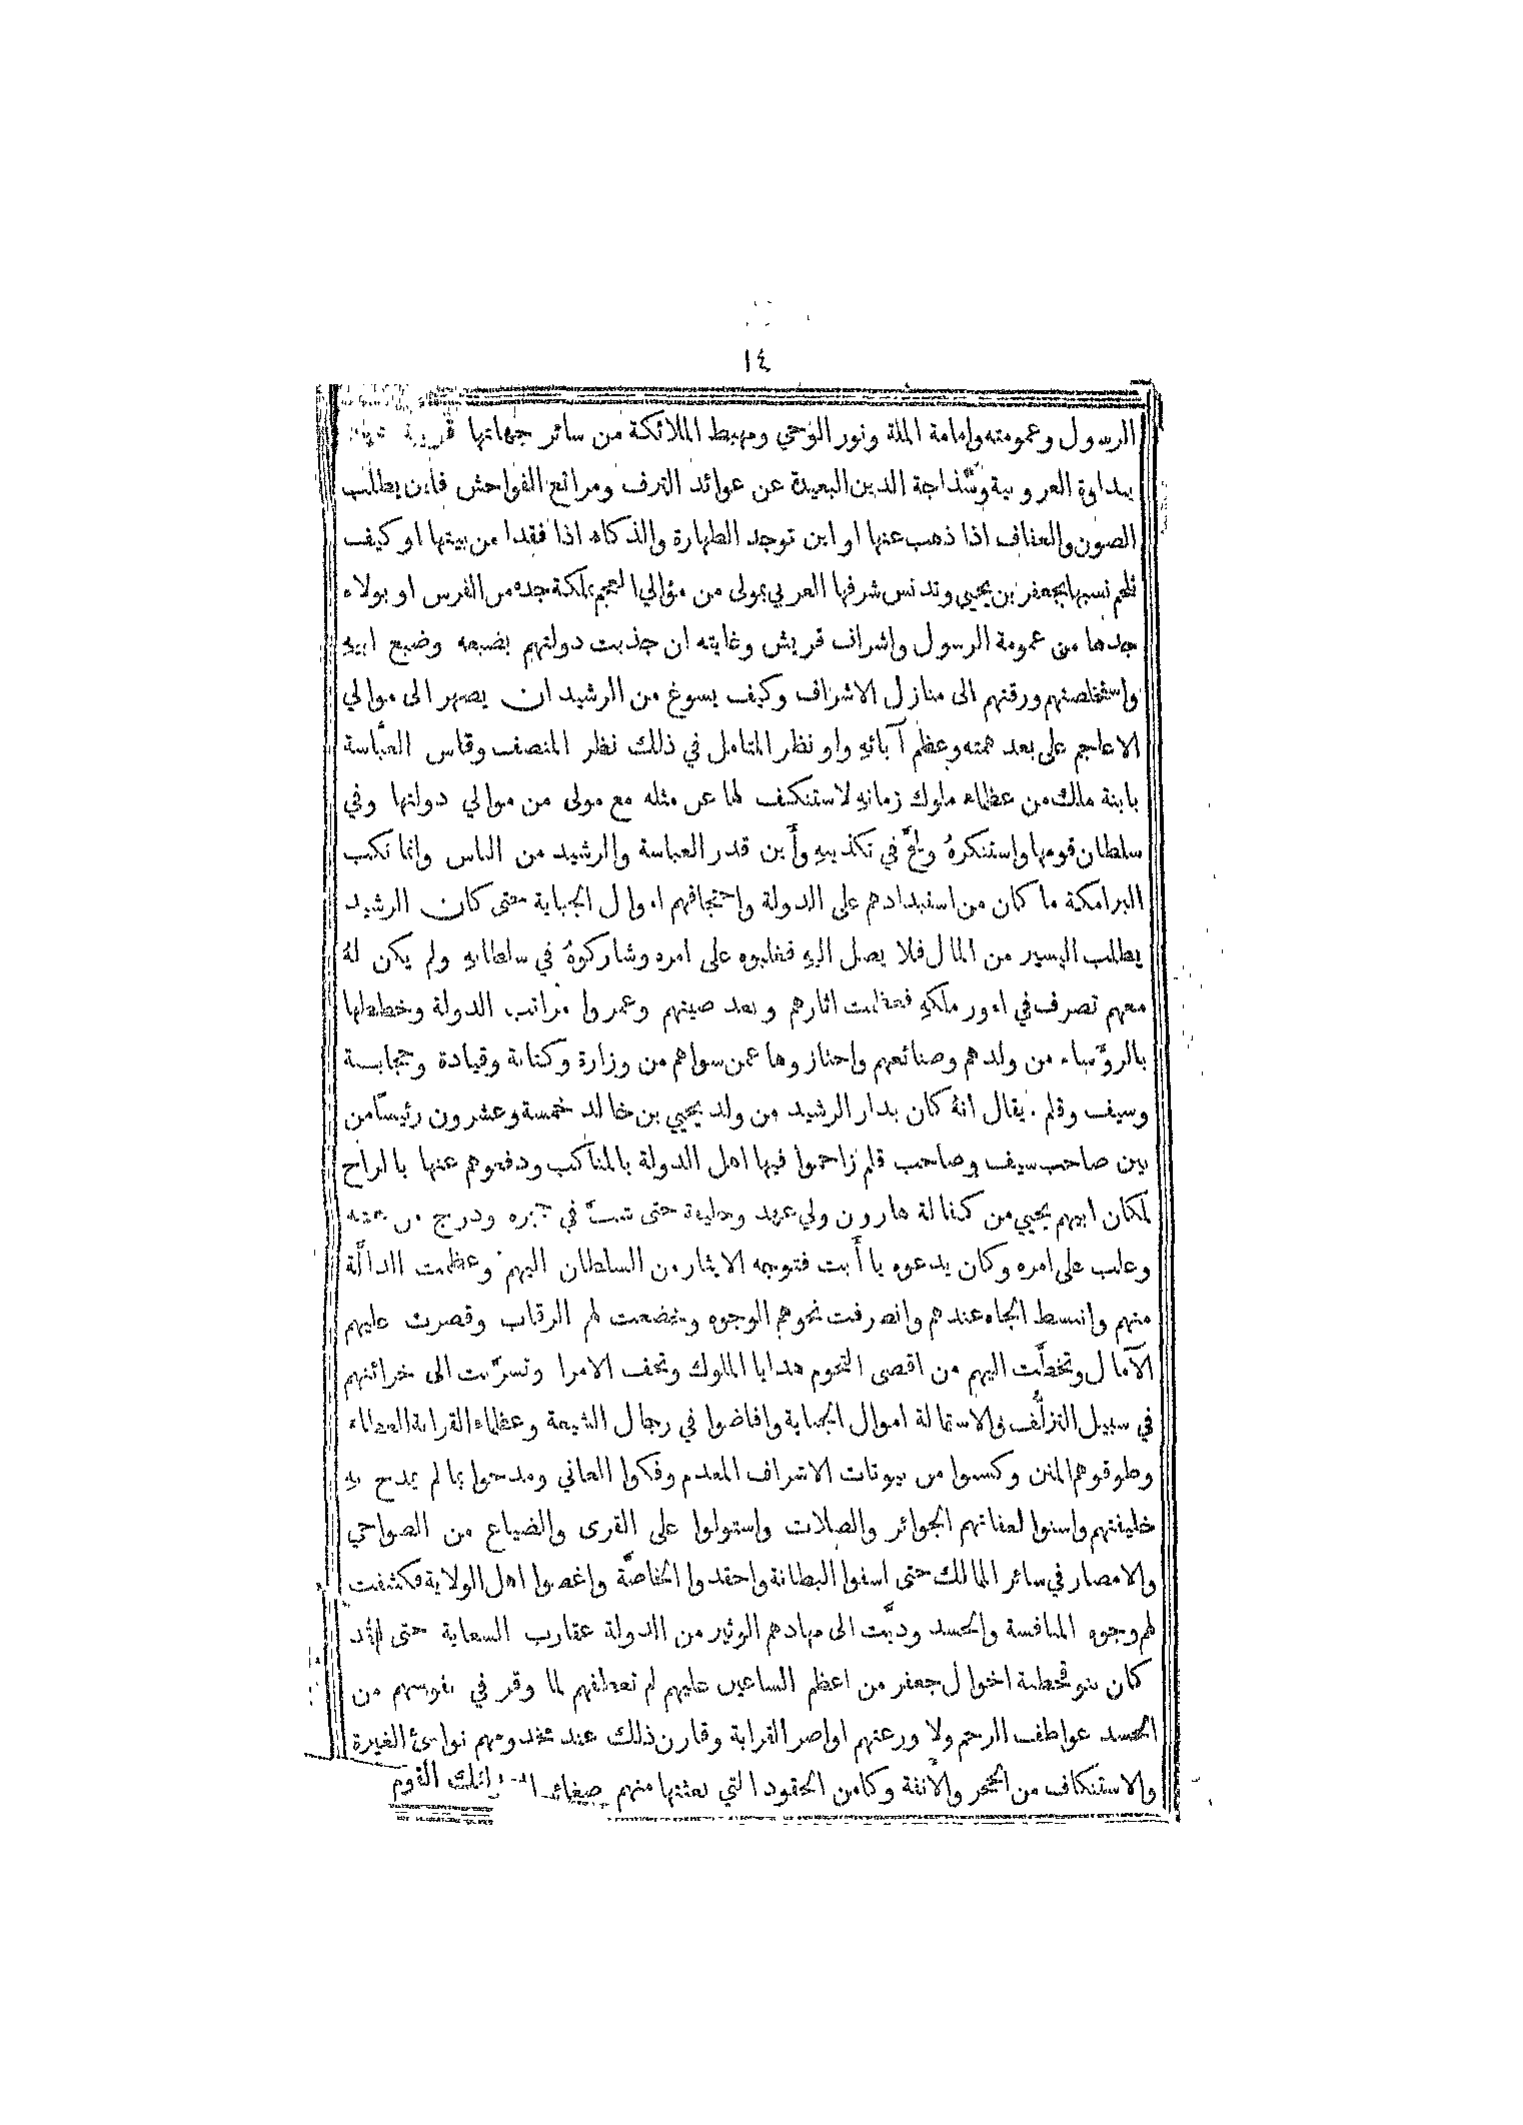 ١٤
الرسول وعمومته وإمامة الملة ونور الوحي ومهبط الملائكة من سائر جهاتها قريبة عهد
ببداوة العروبية وسذاجة الدين البعيدة عن عوائد الترف ومراتع الفواحش فاين يطلب
الصون والعفاف اذا ذهب عنها او اين توجد الطهارة والذكاء اذا فقدا من بيتها او كيف
تلحم نسبها بجعفر بن يحيي وتدنس شرفها العربي بمولى من موالي العجم بملكة جده من الفرس او بولاء
جدها من عمومة الرسول واشراف قريش وغايته ان جذبت دولتهم بضبعه وضبع ابيهِ
واستخلصتهم ورقتهم الى منازل الاشراف وكيف يسوغ من الرشيد ان يصهر الى موالي
الاعاجم على بعد همته وعظم آبائهِ ولو نظر المتامل في ذلك نظر المنصف وقاس العبَّاسة
بابنة ملك من عظماء ملوك زمانهِ لاستنكف لها عن مثله مع مولى من موالي دولتها وفي
سلطان قومها واستنكرهُ ولجَّ في تكذيبهِ وأَين قدر العباسة والرشيد من الناس وانما نكب
البرامكة ما كان من استبدادهم على الدولة واحتجافهم اموال الجباية حتى كان الرشيد
يطلب اليسير من المال فلا يصل اليهِ فغلبوه على امره وشاركوهُ في سلطانهِ ولم يكن لهُ
معهم تصرف في امور ملكهِ فعظمت اثارهم وبعد صيتهم وعمروا مراتب الدولة وخططها
بالروّساء من ولدهم وصنائعهم واحتازوها عمن سواهم من وزارة وكتابة وقيادة وحجابـة
وسيف وقلم . يقال انهُ كان بدار الرشيد من ولد يحيي بن خالد خمسة وعشرون رئيسًا من
بين صاحب سيف وصاحب قلم زاحموا فيها اهل الدولة بالمناكب ودفعوهم عنها بالراح
لمكان ابيهم يحيي من كفالة هارون ولي عهد وخليفة حتى شبَّ في حجره ودرج من عشه
وغلب على امره وكان يدعوه يا أَبت فتوجه الايثار من السلطان اليهم وعظمت الدالَّة
منهم وانبسط الجاه عندهم وانصرفت نحوهم الوجوه وخضعت لهم الرقاب وقصرت عليهم
الآمال وتخطَّت اليهم من اقصى التخوم هدايا الملوك وتحف الامرا وتسرّبت الى خزائنهم
في سبيل التزلُّف والاستمالة اموال الجباية وافاضوا في رجال الشيعة وعظماء القرابة العطاء
وطوقوهم المنن وكسبوا من بيوتات الاشراف المعدم وفكوا العاني ومدحوا بما لم يمدح بهِ
خليفتهم واسنوا لعفاتهم الجوائز والصلات واستولوا على القرى والضياع من الضواحي
والامصار في سائر الممالك حتى اسفوا البطانة واحقدوا الخاصَّة واغصوا اهل الولاية فكشفت
لهم وجوه المنافسة والحسد ودبَّت الى مهادهم الوثير من الدولة عقارب السعاية حتى لقد
كان بنو قحطبة اخوال جعفر من اعظم الساعين عليهم لم تعطفهم لما وقر في نفوسهم من
الحسد عواطف الرحم ولا ورعتهم اواصر القرابة وقارن ذلك عند مخدومهم نواشئ الغيرة
والاستنكاف من الحجر والأنفة وكامن الحقود التي بعثتها منهم صغائر القوم